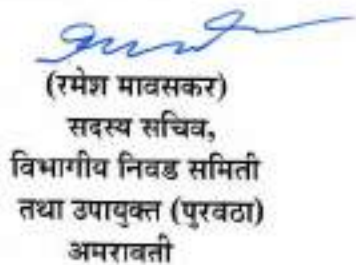 (रमेश मावसकर)
सदस्य सचिव,
विभागीय निवड समिती
तथा उपायुक्त (पुरवठा)
अमरावती